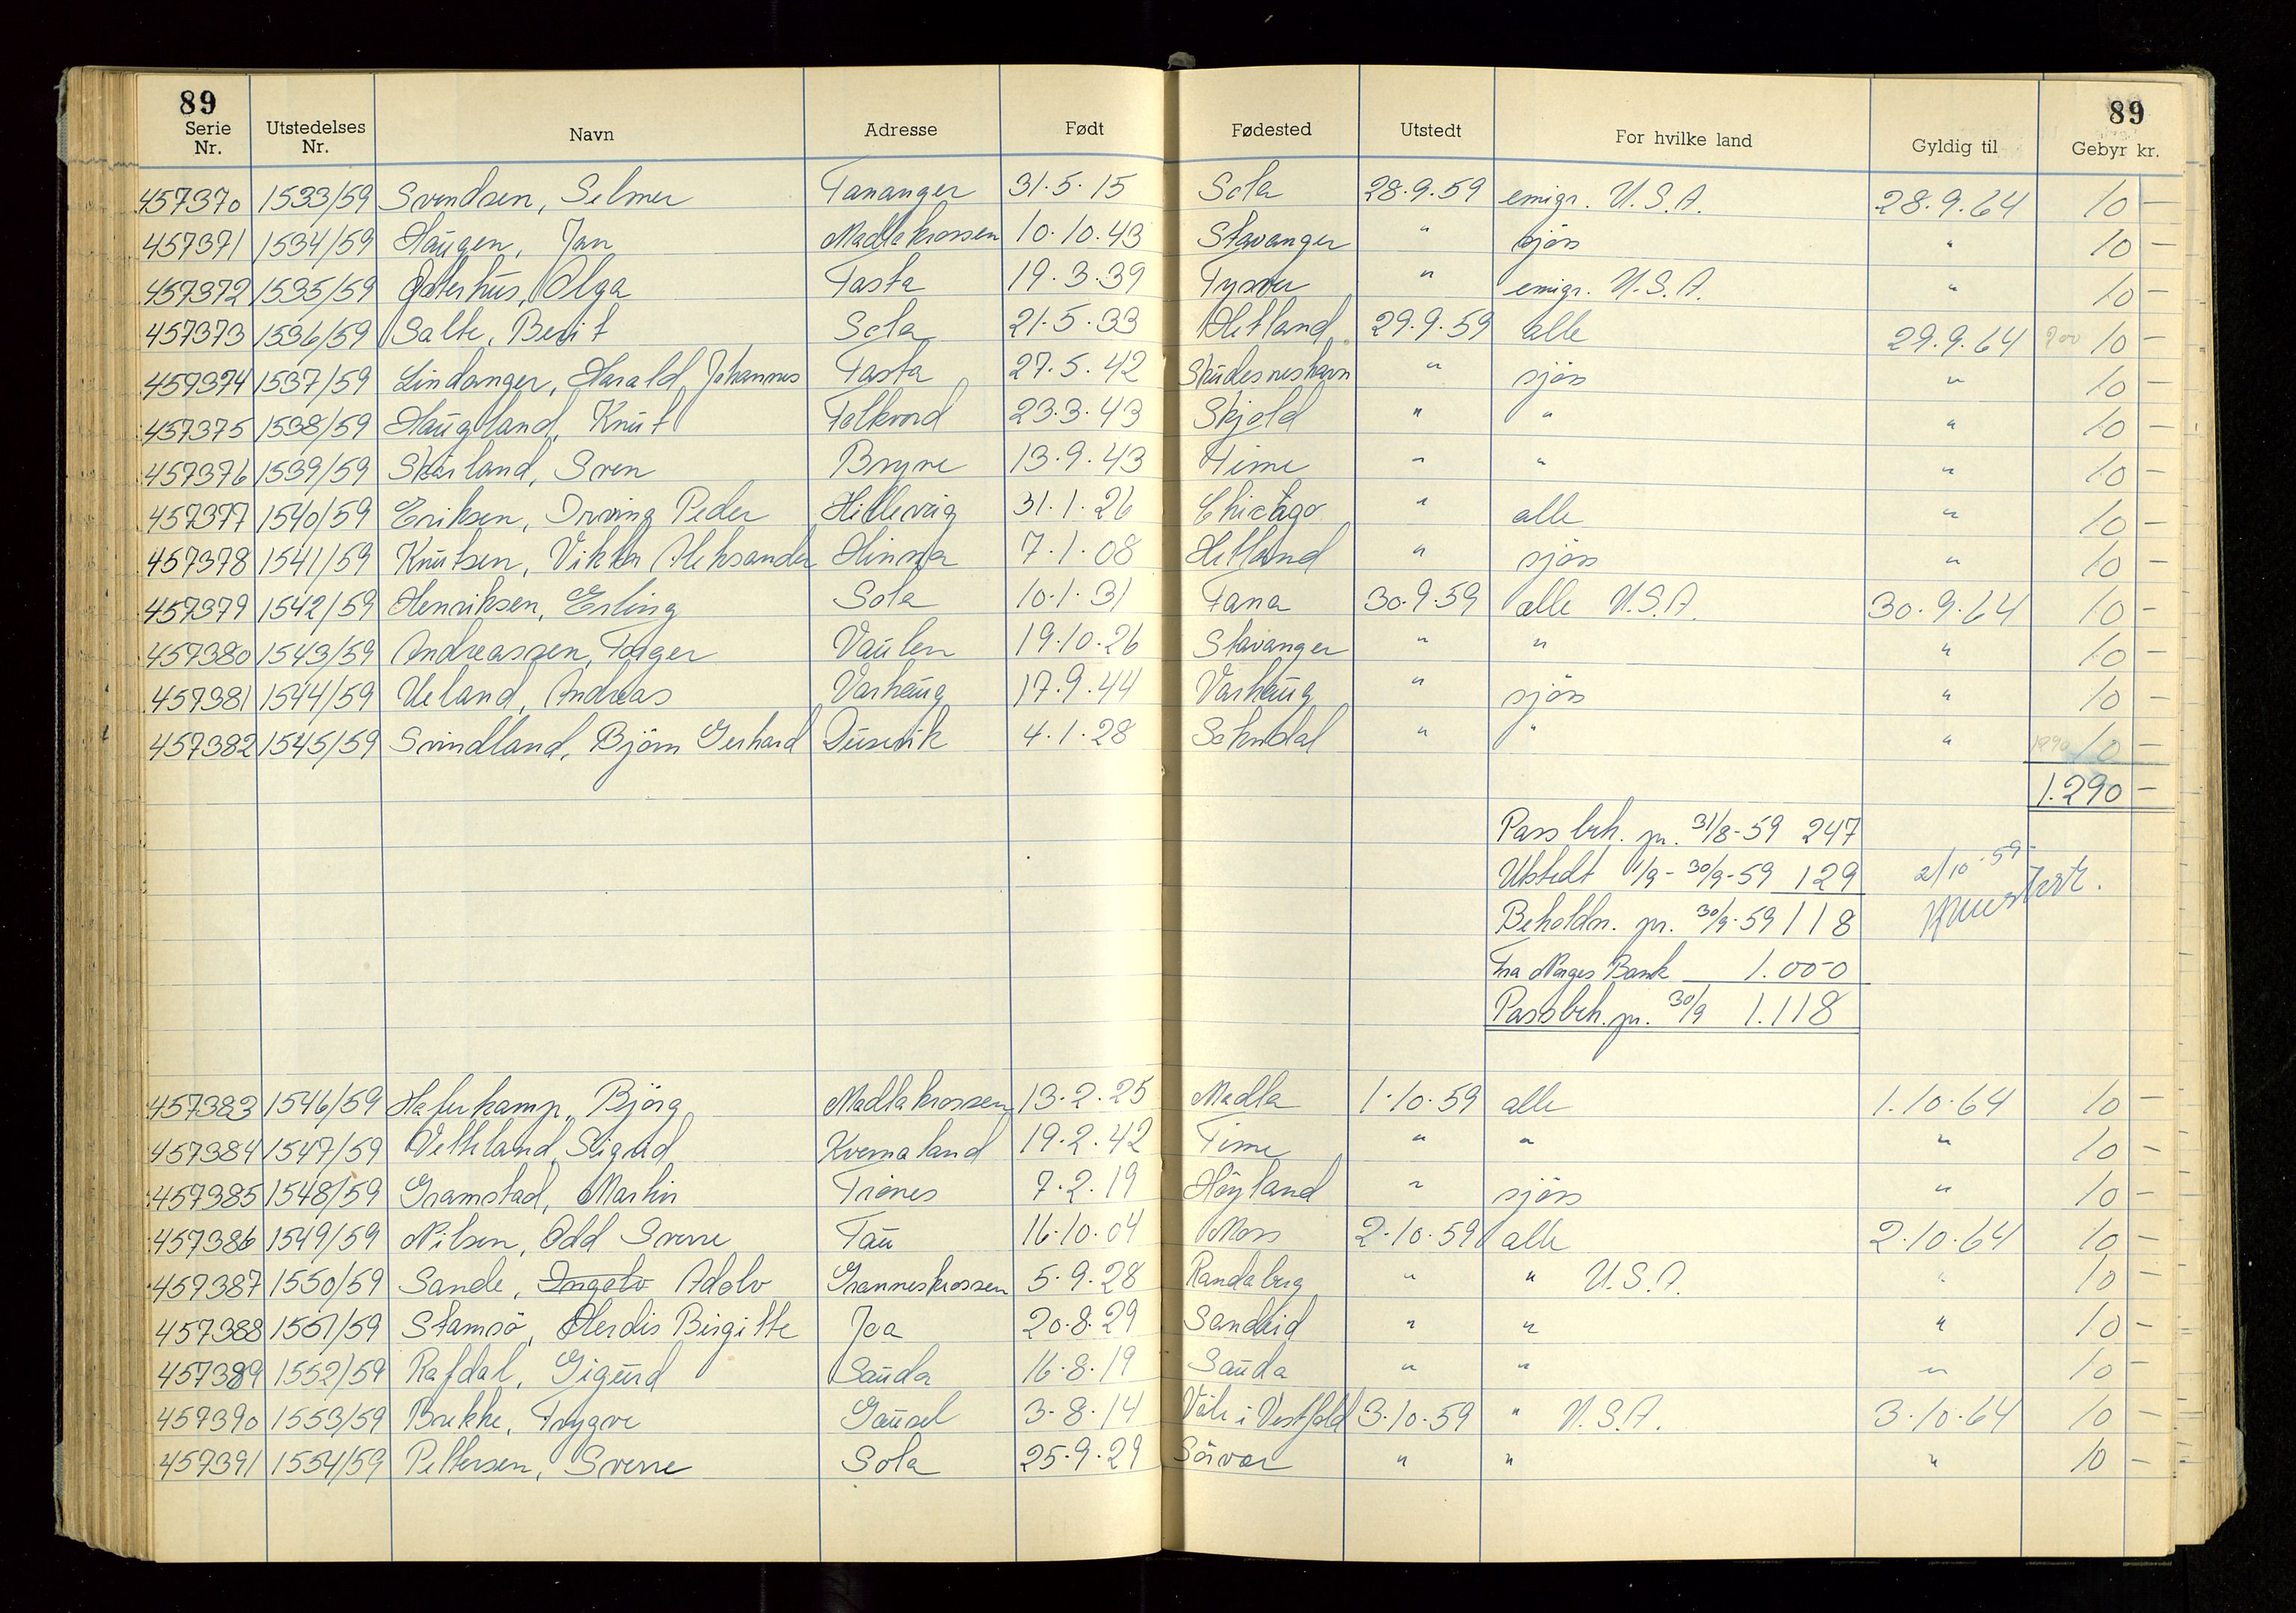 89 89
Serie Nr. Utstedelses Nr. Navn Adresse Født Fødested Utstedt For hvilke land Gyldig til Gebyr kr.
457370 1533/59 Svendsen, Selmer Tananger 31.5.15 Sola 28.9.59 emigr. U.S.A. 28.9.64 10 –
457371 1534/59 Haugen, Jan Madlakrossen 10.10.43 Stavanger " sjøs " 10 –
457372 1535/59 Østerhus, Olga Tasta 19.3.39 Tysvær " emigr. U.S.A. " 10 –
457373 1536/59 Salte, Berit Sola 21.5.33 Hetland 29.9.59 alle 29.9.64 10 –
457374 1537/59 Lindanger, Harald Johannes Tasta 27.5.42 Skudesneshavn " sjøs " 10 –
457375 1538/59 Haugland, Knut Folkvord 23.3.43 Skjold " " " 10 –
457376 1539/59 Skårland, Sven Bryne 13.9.43 Time " " " 10 –
457377 1540/59 Eriksen, Irving Peder Hillevåg 31.1.26 Chicago " alle " 10 –
457378 1541/59 Knutsen, Viktor Aleksander Hinna 7.1.08 Hetland " sjøs " 10 –
457379 1542/59 Henriksen, Erling Sola 10.1.31 Fana 30.9.59 alle U.S.A. 30.9.64 10 –
457380 1543/59 Andreassen, Torger Vaulen 19.10.26 Stavanger " " " 10 –
457381 1544/59 Ueland, Andreas Varhaug 17.9.44 Varhaug " sjøs " 10 –
457382 1545/59 Svindland, Bjørn Gerhard Dusavik 4.1.28 Sokndal " " " 10 –
1.290 –
Pass beh. pr. 31/8-59 247
Utstedt 1/9 - 30/9-59 129 2/10-59
Beholdn. pr. 30/9-59 118
Fra Norges Bank 1.000
Passbeh. pr. 30/9 1.118
457383 1546/59 Haferkamp, Bjørg Madlakrossen 13.2.25 Madla 1.10.59 alle 1.10.64 10 –
457384 1547/59 Vetteland, Sigrid Kvernaland 19.2.42 Time " " " 10 –
457385 1548/59 Gramstad, Martin Trones 7.2.19 Høyland " sjøs " 10 –
457386 1549/59 Nilsen, Odd Sverre Tau 16.10.04 Moss 2.10.59 alle 2.10.64 10 –
457387 1550/59 Sande, Ingolv Adolv Granneskrossen 5.9.28 Randaberg " " U.S.A. " 10 –
457388 1551/59 Stamsö, Herdis Birgitte Joa 20.8.29 Sandeid " " " 10 –
457389 1552/59 Rafdal, Sigurd Sauda 16.8.19 Sauda " " " 10 –
457390 1553/59 Brekke, Trygve Gausel 3.8.14 Våle i Vestfold 3.10.59 " U.S.A. 3.10.64 10 –
457391 1554/59 Pettersen, Sverre Sola 25.9.29 Sörvær " " " 10 –